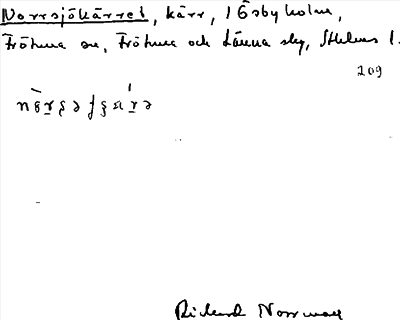 Norrsjökärret, kärr, i Ösbyholm,
Frötuna sn, Frötuna och Länna skg, Sthlms l.
209
Rickard Norrman